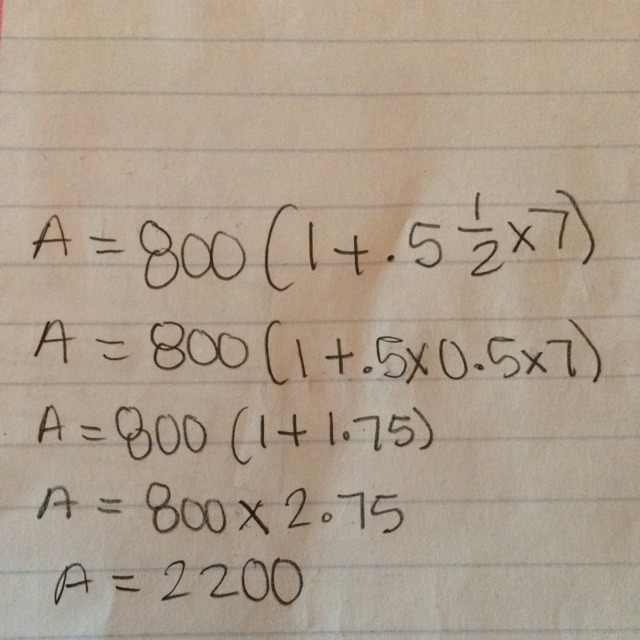 A = 800 (1 + .5 1/2 x 7)
A = 800 (1 + .5 x 0.5 x 7)
A = 800 (1 + 1.75)
A = 800 x 2.75
A = 2200